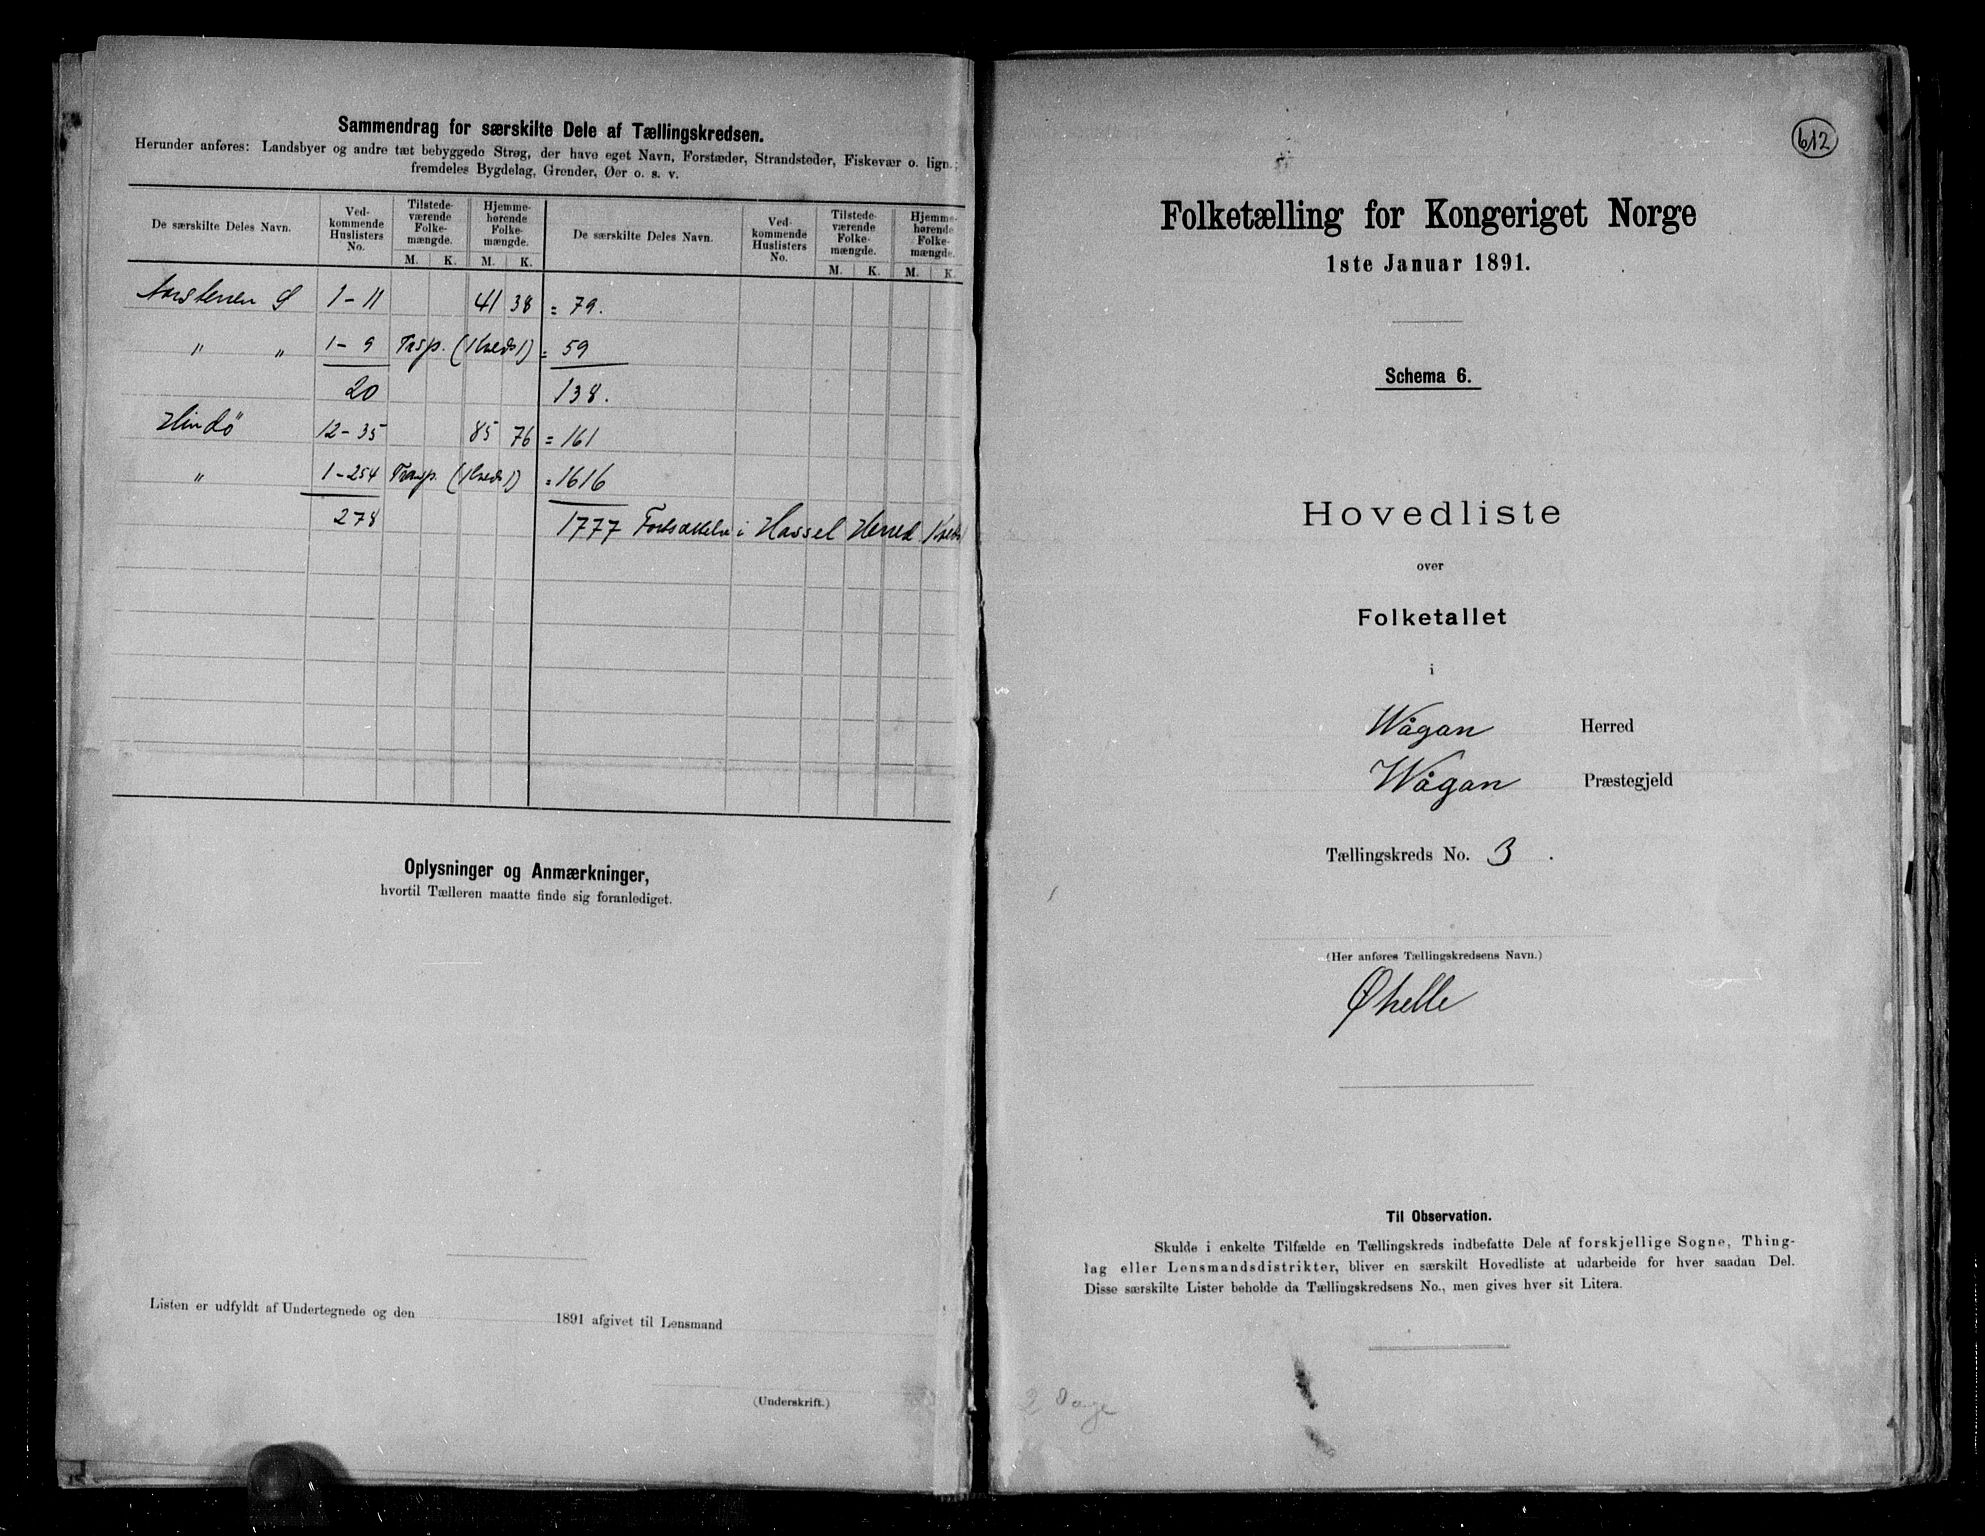 Sammendrag for særskilte Dele af Tællingskredsen.
Herunder anføres: Landsbyer og andre tæt bebyggede Strøg, der have eget Navn, Forstæder, Strandsteder, Fiskevær o. lign.;
fremdeles Bygdelag, Grender, Øer o. s. v.
De særskilte Deles Navn. Ved-kommende Huslisters No. Tilstede-værende Folke-mængde. Hjemme-hørende Folke-mængde. De særskilte Deles Navn. Ved-kommende Huslisters No. Tilstede-værende Folke-mængde. Hjemme-hørende Folke-mængde.
M. K. M. K. M. K. M. K.
1-11 41 38 = 79.
" " 1-9 Trsp. (Kreds 1) = 59
20 138.
Hindö 12-35 85 76 = 161
" 1-254 Transp. (Kreds 1) = 1616
278 1777 Fortsættelse i Hassel Herred Kreds
Oplysninger og Anmærkninger,
hvortil Tælleren maatte finde sig foranlediget.
Listen er udfyldt af Undertegnede og den 1891 afgivet til Lensmand
(Underskrift.)
612
Folketælling for Kongeriget Norge
1ste Januar 1891.
Schema 6.
Hovedliste
over
Folketallet
i
Wågan Herred
Wågan Præstegjeld
Tællingskreds No. 3.
(Her anføres Tællingskredsens Navn.)
Øhelle
Til Observation.
Skulde i enkelte Tilfælde en Tællingskreds indbefatte Dele af forskjellige Sogne, Thing-
lag eller Lensmandsdistrikter, bliver en særskilt Hovedliste at udarbeide for hver saadan Del.
Disse særskilte Lister beholde da Tællingskredsens No., men gives hver sit Litera.